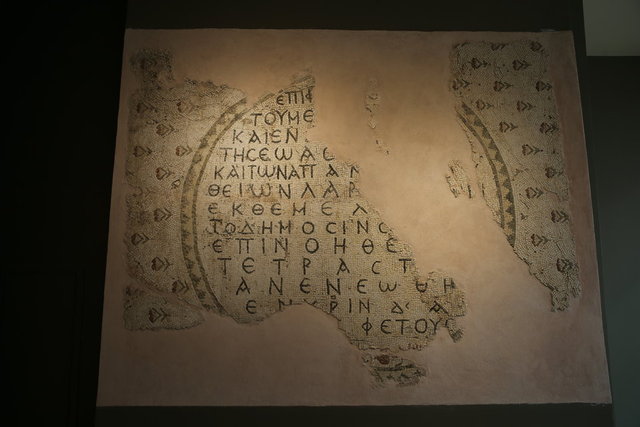 ΕΠΙ
ΤΟΥΜΕ
ΚΑΙΕΝ
ΤΗCΕΩΑC
ΚΑΙΤΩΝΑΠΑΝ
ΘΕΙΩΝΛΑΡ
ΕΚΘΕΜΕΛ
ΤΟΔΗΜΟCΙΝC
ΕΠΙΝΟΗΘΕ
ΤΕΤΡΑCΤ
ΑΝΕΝΕΩΘΗ
ΙΝΔ
ΦΕΤΟΥ